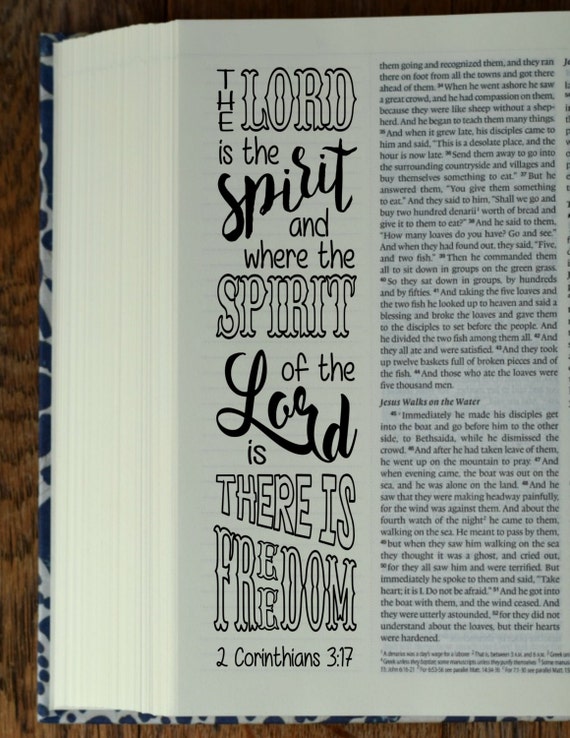 THE LORD
is the
spirit
and
where the
SPIRIT
of the
Lord
is
THERE IS
FREEDOM
2 Corinthians 3:17
them going and recognized them, and they ran
there on foot from all the towns and got there
ahead of them. 34 When he went ashore he saw
a great crowd, and he had compassion on them,
because they were like sheep without a shep-
herd. And he began to teach them many things.
35 And when it grew late, his disciples came to
him and said, "This is a desolate place, and the
hour is now late. 36 Send them away to go into
the surrounding countryside and villages and
buy themselves something to eat." 37 But he
answered them, "You give them something
to eat." And they said to him, "Shall we go and
buy two hundred denarii worth of bread and
give it to them to eat?" 38 And he said to them,
"How many loaves do you have? Go and see."
And when they had found out, they said, "Five,
and two fish." 39 Then he commanded them
all to sit down in groups on the green grass.
40 So they sat down in groups, by hundreds
and by fifties. 41 And taking the five loaves and
the two fish he looked up to heaven and said a
blessing and broke the loaves and gave them
to the disciples to set before the people. And
he divided the two fish among them all. 42 And
they all ate and were satisfied. 43 And they took
up twelve baskets full of broken pieces and of
the fish. 44 And those who ate the loaves were
five thousand men.
Jesus Walks on the Water
45 Immediately he made his disciples get
into the boat and go before him to the other
side, to Bethsaida, while he dismissed the
crowd. 46 And after he had taken leave of them,
he went up on the mountain to pray. 47 And
when evening came, the boat was out on the
sea, and he was alone on the land. 48 And he
saw that they were making headway painfully,
for the wind was against them. And about the
fourth watch of the night 2 he came to them,
walking on the sea. He meant to pass by them,
49 but when they saw him walking on the sea
they thought it was a ghost, and cried out,
50 for they all saw him and were terrified. But
immediately he spoke to them and said, "Take
heart; it is I. Do not be afraid." 51 And he got into
the boat with them, and the wind ceased. And
they were utterly astounded, 52 for they did not
understand about the loaves, but their hearts
were hardened.